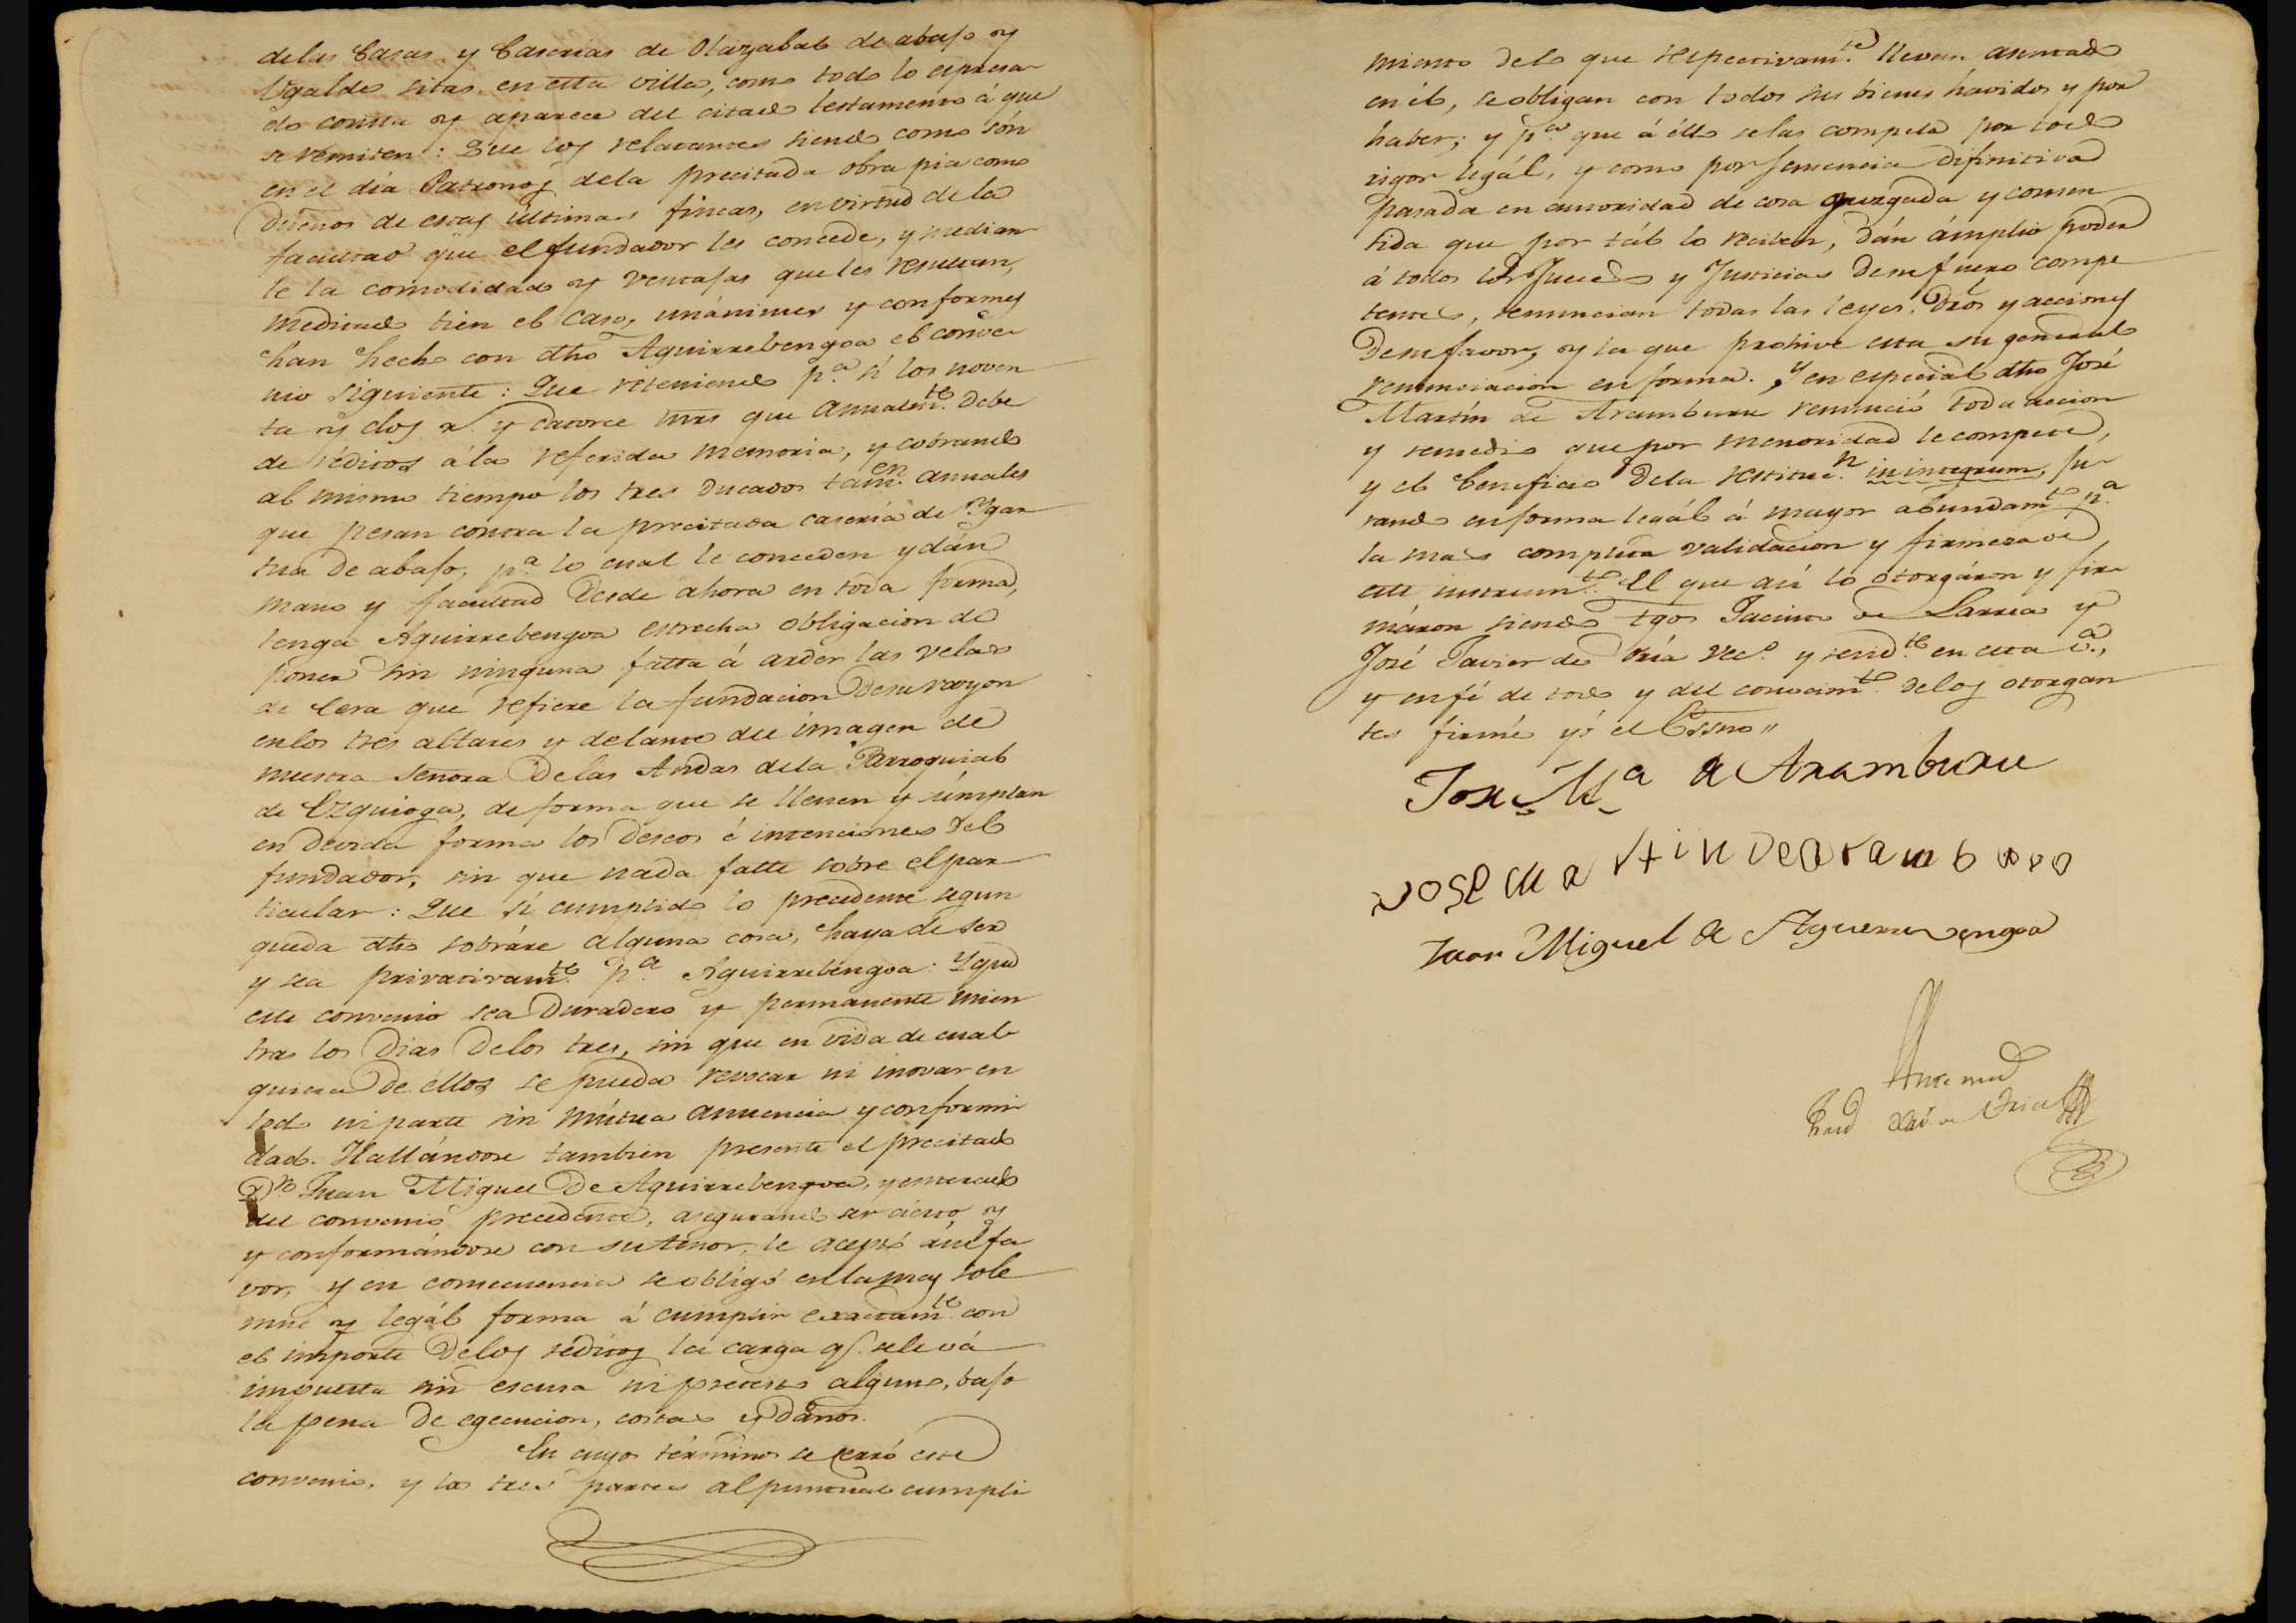 delas Casas y Caserias de Olazabal de abajo y
Ugalde sitas en esta villa, como todo lo espresa-
do consta y aparece del citado testamento á que
se remiten: Que los relatantes siendo como són
en el día Patronos dela precitada obra pia como
Dueños de estas últimas fincas, en virtud de la
facultad que el fundador les concede, y median-
te la comodidad y ventajas que les resultan,
meditado bien el caso, unánimes y conformes
han hecho con dho Aguirrebengoa el conve-
nio siguiente: Que reteniendo p.ª sí los noven-
ta y dos r.ˢ y catorce mrs que anualm.te debe
de réditos á la referida memoria, y cobrando
al mismo tiempo los tres Ducados tam.en anuales
que pesan contra la precitada casería de Ygar-
tua de abajo, p.ª lo cual le conceden y dán
mano y facultad desde ahora en toda forma,
tenga Aguirrebengoa estrecha obligacion de
poner sin ninguna falta á arder las velas
de Cera que refiere la fundacion
en los tres altares y delante del imagen de
nuestra Señora Delas Andas dela Parroquial
de Ezquioga, de forma que se llenen y cumplan
en devida forma los deseos é intenciones del
fundador, sin que nada falte sobre el par-
ticular: Que si cumplido lo precedente segun
queda dho sobráre alguna cosa, haya de ser
y sea privativam.te p.ª Aguirrebengoa: Y que
este convenio sea Duradero y permanente mien-
tras los Dias Delos tres, sin que en vida de cual-
quiera De éllos se pueda revocar ni inovar en
todo ni parte sin mútua anuencia y conformi-
dad. Hallándose tambien presente el precitado
D.n Juan Miguel De Aguirrebengoa, y enterado
del convenio precedente, asegurando ser cierto, y
y conformándose con su tenor, le aceptó á su fa-
vor, y en consecuencia se obligó en la mas sole-
mne y legál forma á cumplir exactam.te con
el importe Delos réditos la carga q.e se le vá
impuesta sin escusa ni pretesto alguno, bajo
la pena De egecucion, costas y Daños.
En cuyos términos se cerró este
convenio, y las tres partes al puntual cumpli-
miento delo que respectivam.te llevan asentado
en él, se obligan con todos sus bienes havidos y por
haber; y p.ª que á éllo se las compela por todo
rigor legál, y como por Sentencia difinitiva
pasada en autoridad de cosa juzgada y consen-
tida que por tál lo reciben, dán ámplio poder
á todos los Jueces y Justicias De su fuero compe-
tentes, renuncian todas las leyes, Dros y acciones
De su favor, y la que prohive esta su general
renunciacion en forma. Y en especial dho José
Martín de Aramburu renunció toda accion
y remedio que por menoridad le compete,
y el beneficio Dela restituc.n in integrum, ju-
rando en forma legál á mayor abundam.to p.ª
la mas completa validacion y firmeza de
este instrum.to El que así lo otorgáron y fir-
máron siendo tgos Jacinto de Larrea y
José Javier de Oria vec.s y resid.tes en esta v.ª,
y en fé de todo y del conocim.to delos otorgan-
tes firmé yó el Essno //
Jose M.ª de Aramburu
Jose Martin de aramburu
Juan Miguel de Aguerrevengoa
Ante mí
de Oria